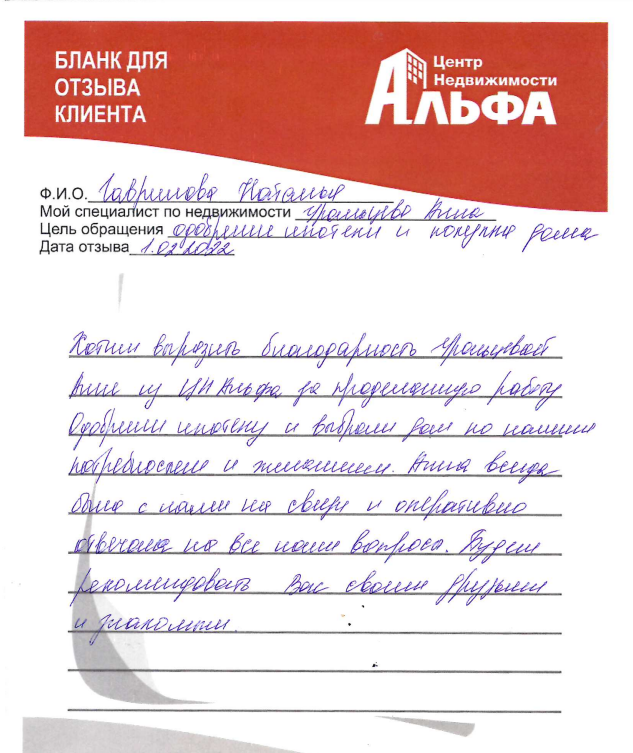 БЛАНК ДЛЯ
ОТЗЫВА
КЛИЕНТА
Центр
Недвижимости
АЛЬФА
Ф.И.О. Гаврилова Наталья
Мой специалист по недвижимости Уральцева Анна
Цель обращения одобрение ипотеки и покупка дома
Дата отзыва 1.02.2022
Хотим выразить благодарность Уральцевой
Анне из ЦН Альфа за проделанную работу
Одобрили ипотеку и выбрали дом по нашим
потребностям и желаниям. Анна всегда
была с нами на связи и оперативно
отвечала на все наши вопросы. Будем
рекомендовать Вас своим друзьям
и знакомым.